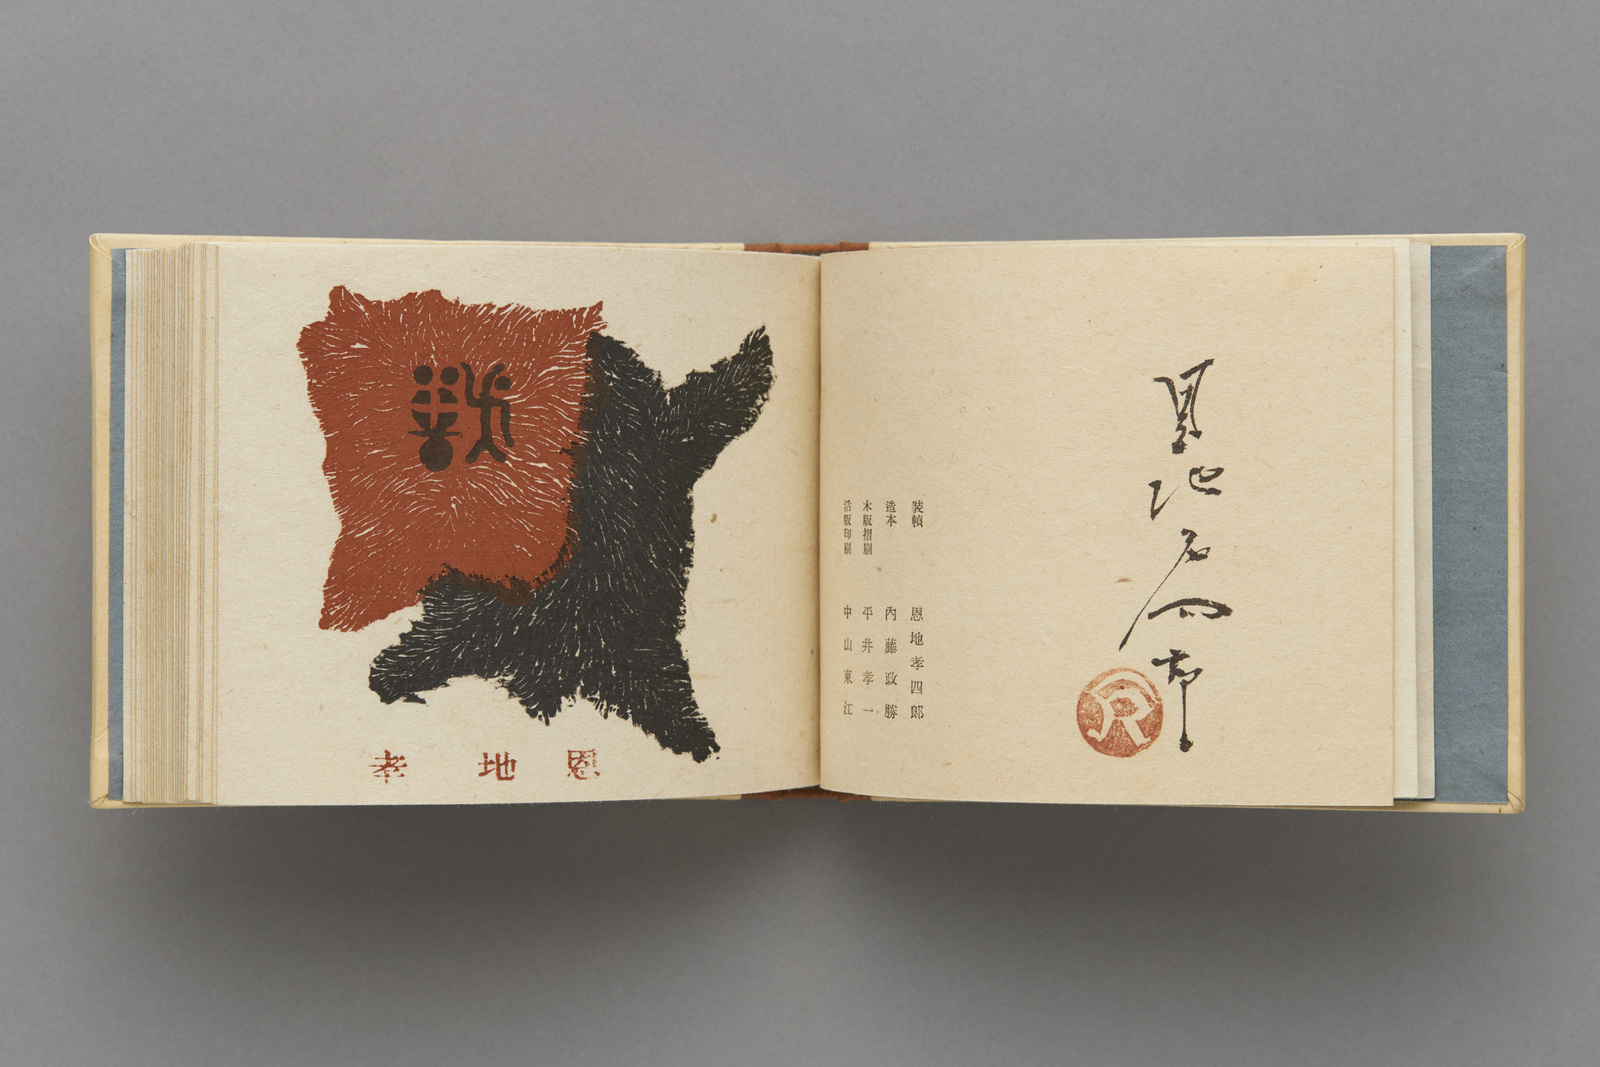 恩地孝四郎
R
裝幀 恩地孝四郎
造本 内藤政勝
木版摺刷 平井孝一
活版印刷 中山東江
獸
恩地孝